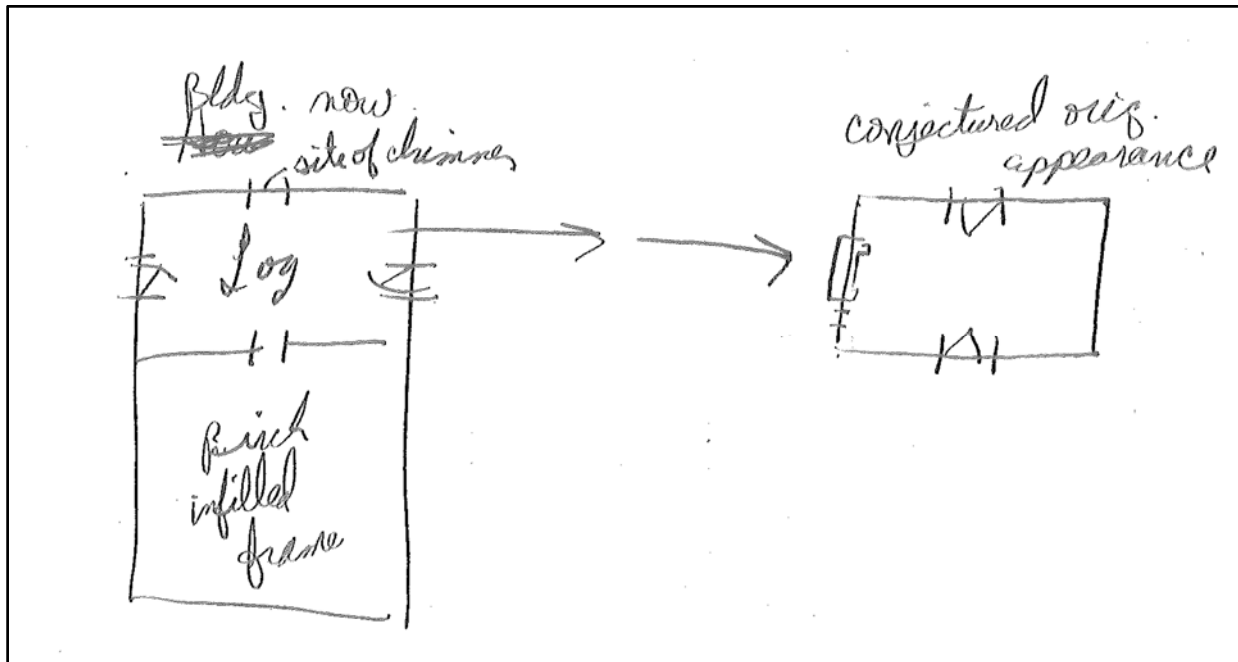 Bldg. now
site of chimney
Log
Brick
infilled
frame
conjectured orig.
appearance